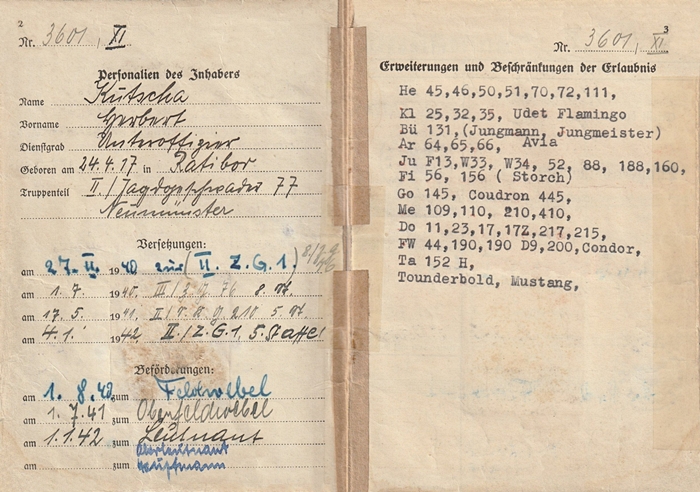 2
Nr. 3601, XI
Personalien des Inhabers
Name Kutscha
Vorname Herbert
Dienstgrad Unteroffizier
Geboren am 24.4.17 in Ratibor
Truppenteil II./Jagdgeschwader 77
Neumünster
Versetzungen:
am 27. II. 1940 zur (II. Z.G.1)
am 1. 7. 1940 III/ 76 8. St.
am 17. 5. 1941 II/ 210 5. St.
am 4.1. 1942 II./Z.G.1, 5. Staffel
Beförderungen:
am 1. 8. 40 zum Feldwebel
am 1.7.41 zum Oberfeldwebel
am 1.1.42 zum Leutnant
am zum Oberleutnant
am zum Hauptmann
3
Nr. 3601, XI.
Erweiterungen und Beschränkungen der Erlaubnis
He 45,46,50,51,70,72,111,
Kl 25,32,35, Udet Flamingo
Bü 131,(Jungmann, Jungmeister)
Ar 64,65,66, Avia
Ju F13,W33, W34, 52, 88, 188,160,
Fi 56, 156 ( Storch)
Go 145, Coudron 445,
Me 109,110, 210,410,
Do 11,23,17,17Z,217,215,
FW 44,190,190 D9,200,Condor,
Ta 152 H,
Tounderbold, Mustang,